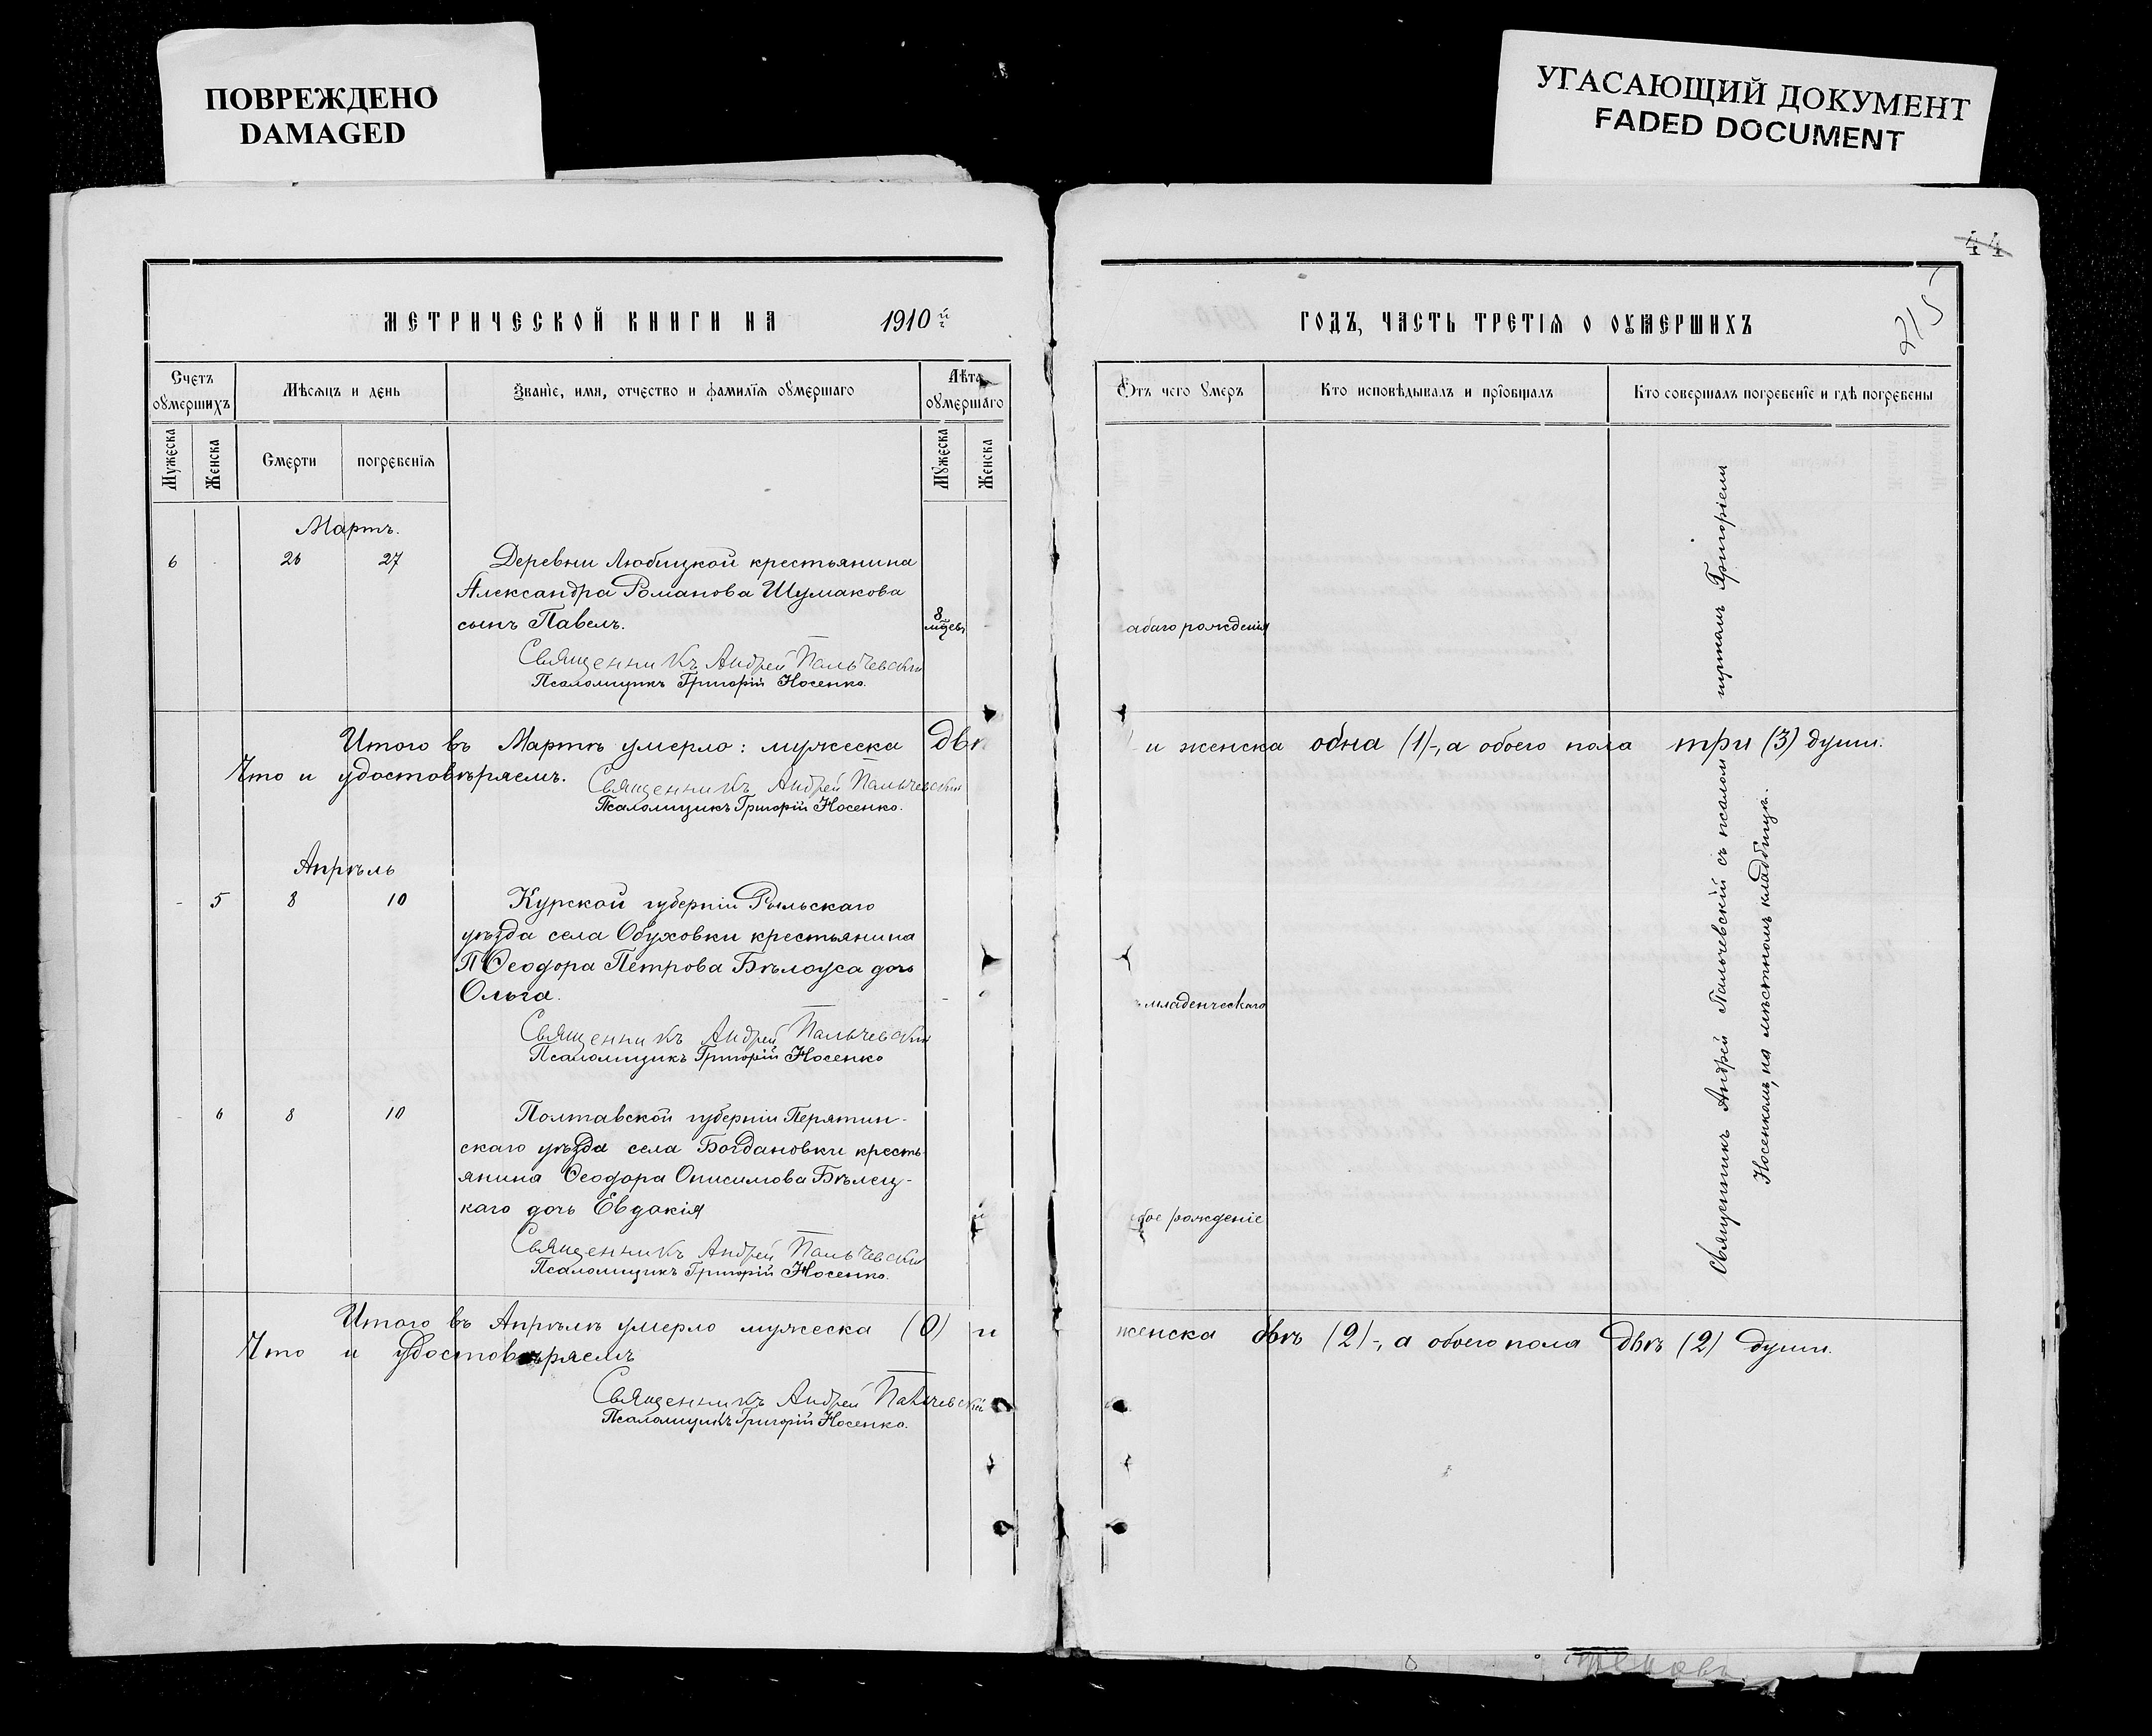 ПОВРЕЖДЕНО
DAMAGED
УГАСАЮЩИЙ ДОКУМЕНТ
FADED DOCUMENT
44
215
МЕТРИЧЕСКОЙ КНИГИ НА 1910 й
Счетъ оумершихъ
Мѣсяцъ и день
Званіе, имя, отчество и фамилїя оумершаго
Лѣта оумершаго
Мужеска
Женска
Смерти
погребенія
Мужеска
Женска
Мартъ.
6 26 27 Деревни Любицкой крестьянина
Александра Романова Шумакова
сынъ Павелъ. 8 мцевъ
Священникъ Андрей Пальчевскій
Псаломщикъ Григорій Носенко.
Итого въ Мартѣ умерло: мужеска двѣ
Что и удостовѣряемъ. Священникъ Андрей Пальчевскій
Псаломщикъ Григорій Носенко.
Апрѣль
- 5 8 10 Курской губерніи Рыльскаго
уѣзда села Обуховки крестьянина
Ѳеодора Петрова Бѣлоуса дочь
Ольга.
Священникъ Андрей Пальчевскій
Псаломщикъ Григорій Носенко
- 6 8 10 Полтавской губерніи Перятин-
скаго уѣзда села Богдановки кресть-
янина Ѳеодора Онисимова Бѣлец-
каго дочь Евдокія
Священникъ Андрей Пальчевскій
Псаломщикъ Григорій Носенко.
Итого въ Апрѣлѣ умерло мужеска (0) и
Что и удостовѣряемъ
Священникъ Андрей Пальчевскій
Псаломщикъ Григорій Носенко.
ГОДЪ, ЧАСТЬ ТРЕТІЯ О ОУМЕРШИХЪ
Отъ чего умеръ
Кто исповѣдывалъ и прїобщалъ
Кто совершалъ погребенїе и гдѣ погребены
абаго рожденія
и женска одна (1)-, а обоего пола три (3) души.
младенческаго
бое рожденіе
Священникъ Андрей Пальчевскій съ псалом
щикомъ Григоріемъ
Носенкомъ, на мѣстномъ кладбищѣ.
женска двѣ (2)-, а обоего пола двѣ (2) души.